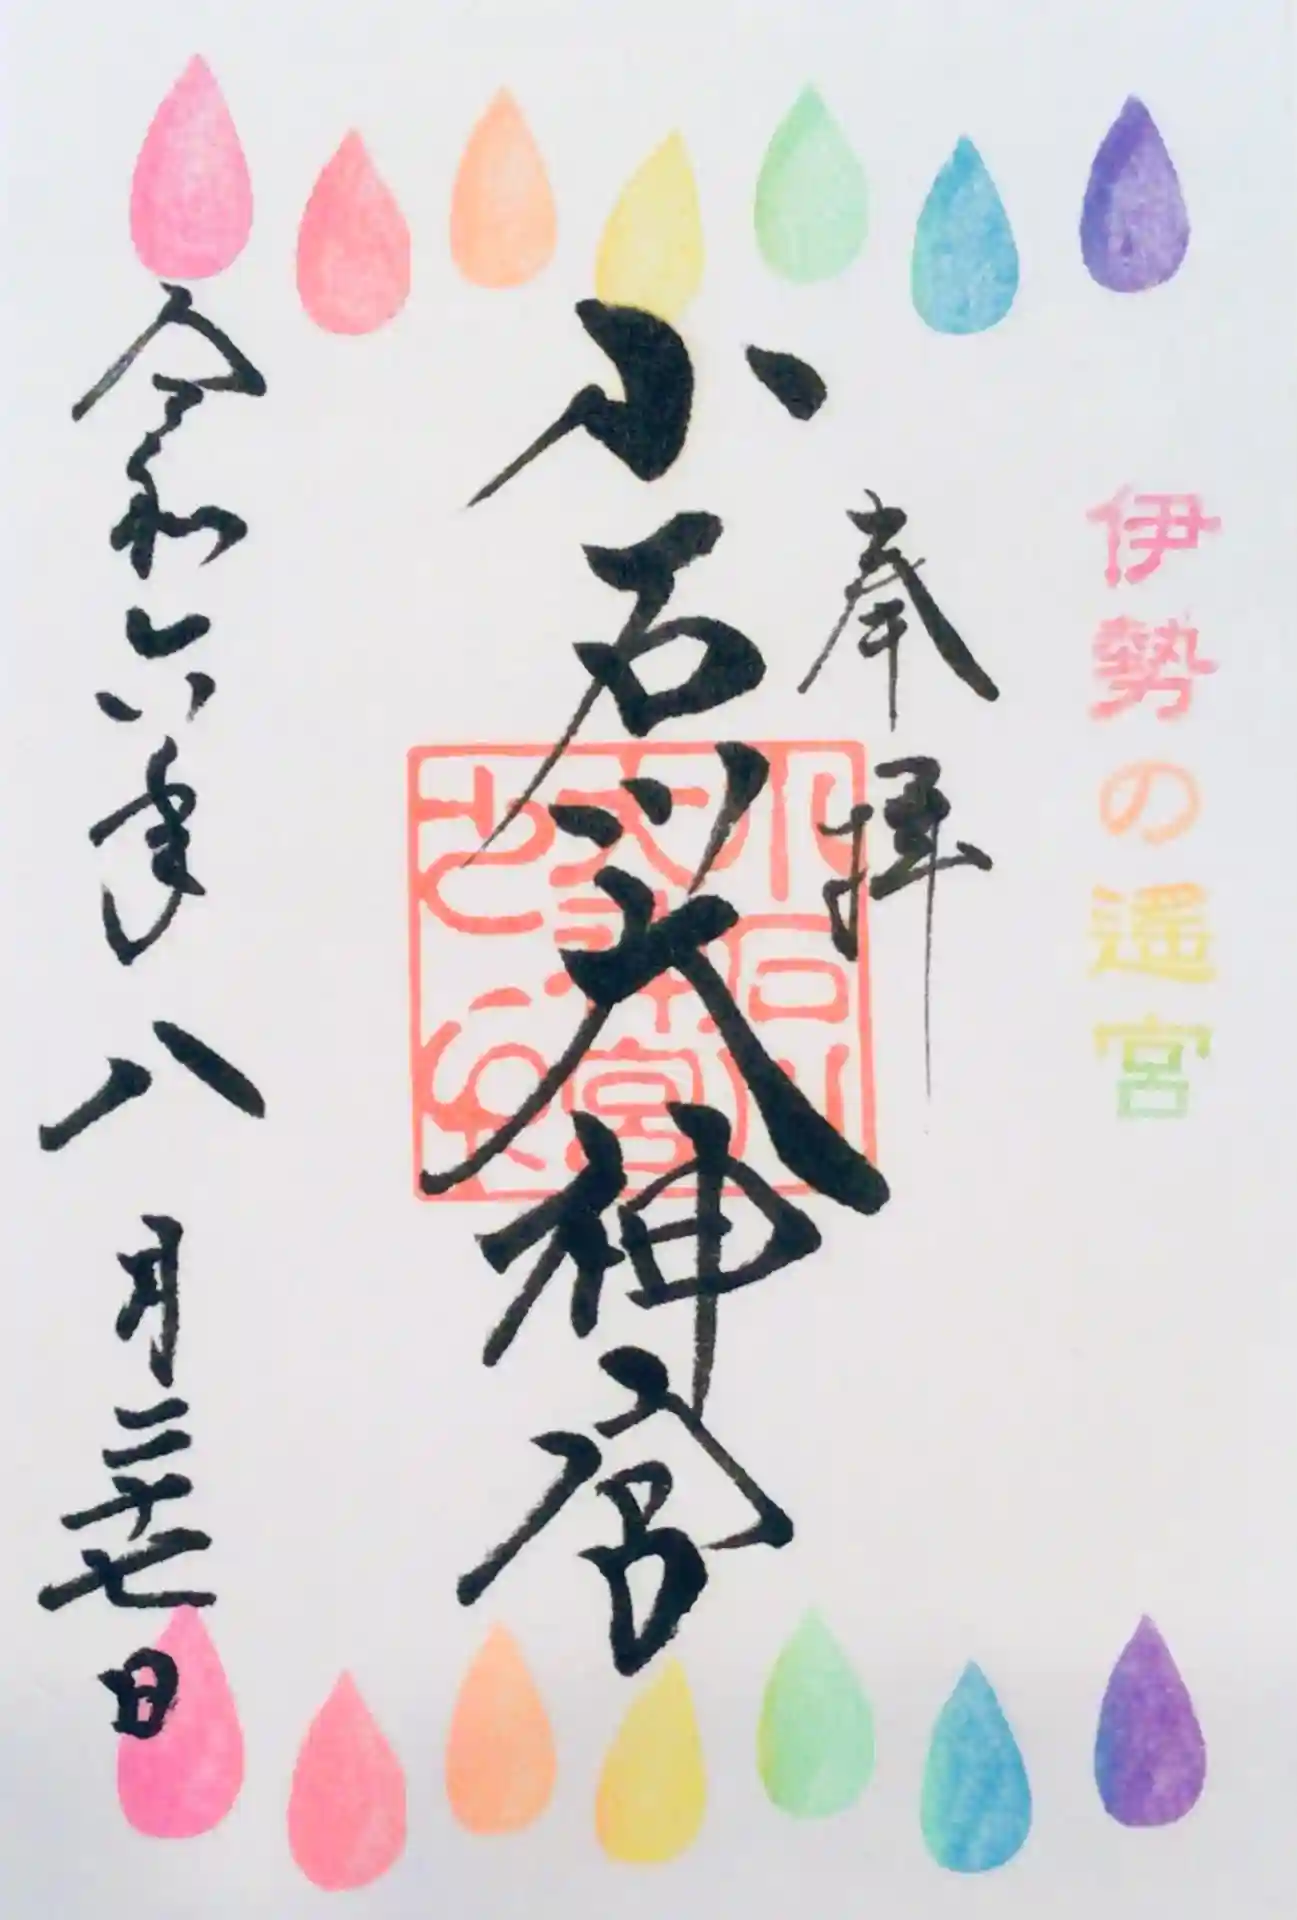 伊勢の遥宮
奉拝
小石川大神宮
小石川
大神宮
之印
令和六年八月二十七日